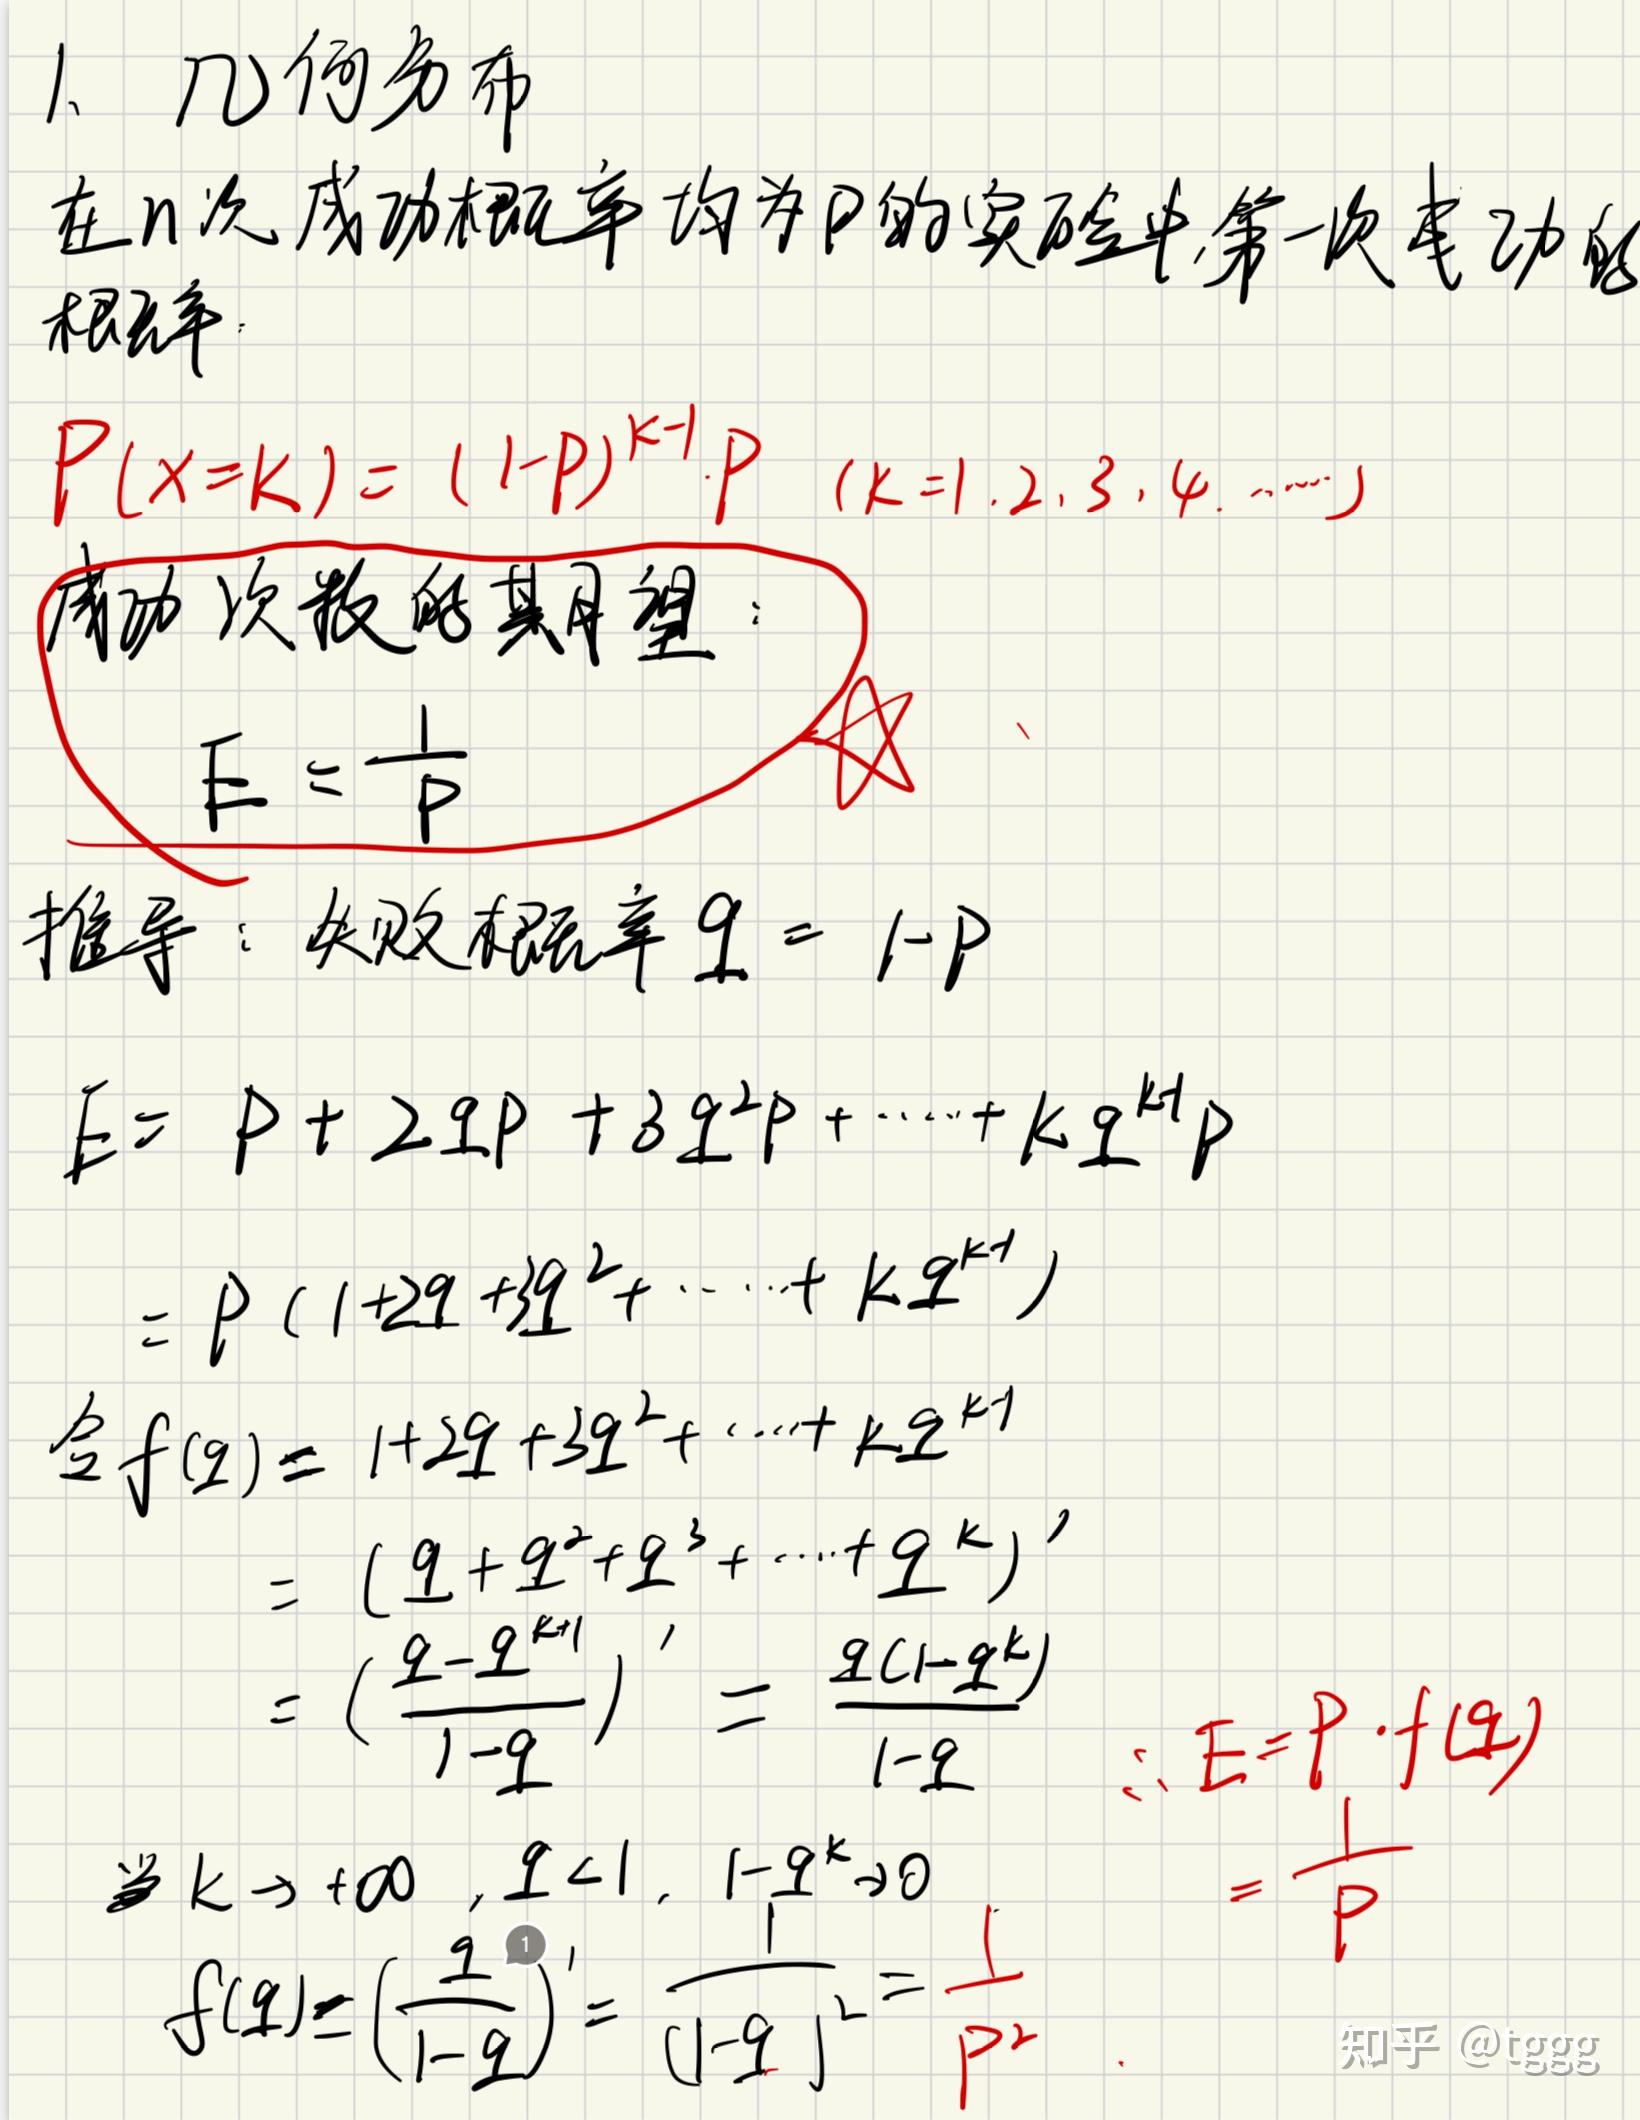 1、几何分布
在n次成功概率均为P的实验中,第一次成功的
概率:
P(x=k)=(1-P)^{k-1}·P (k=1.2.3.4.……)
成功次数的期望:
E=\frac{1}{P}
推导:失败概率q=1-P
E=P+2qP+3q^2P+……+kq^{k-1}P
=P(1+2q+3q^2+……+kq^{k-1})
令f(q)=1+2q+3q^2+……+kq^{k-1}
=(q+q^2+q^3+……+q^k)'
=(\frac{q-q^{k+1}}{1-q})'=\frac{q(1-q^k)}{1-q}
∴E=P·f(q)
=\frac{1}{P}
当k→+∞,q<1,1-q^k→0
f(q)=(\frac{q}{1-q})'=\frac{1}{(1-q)^2}=\frac{1}{P^2}
1
知乎 @tggg